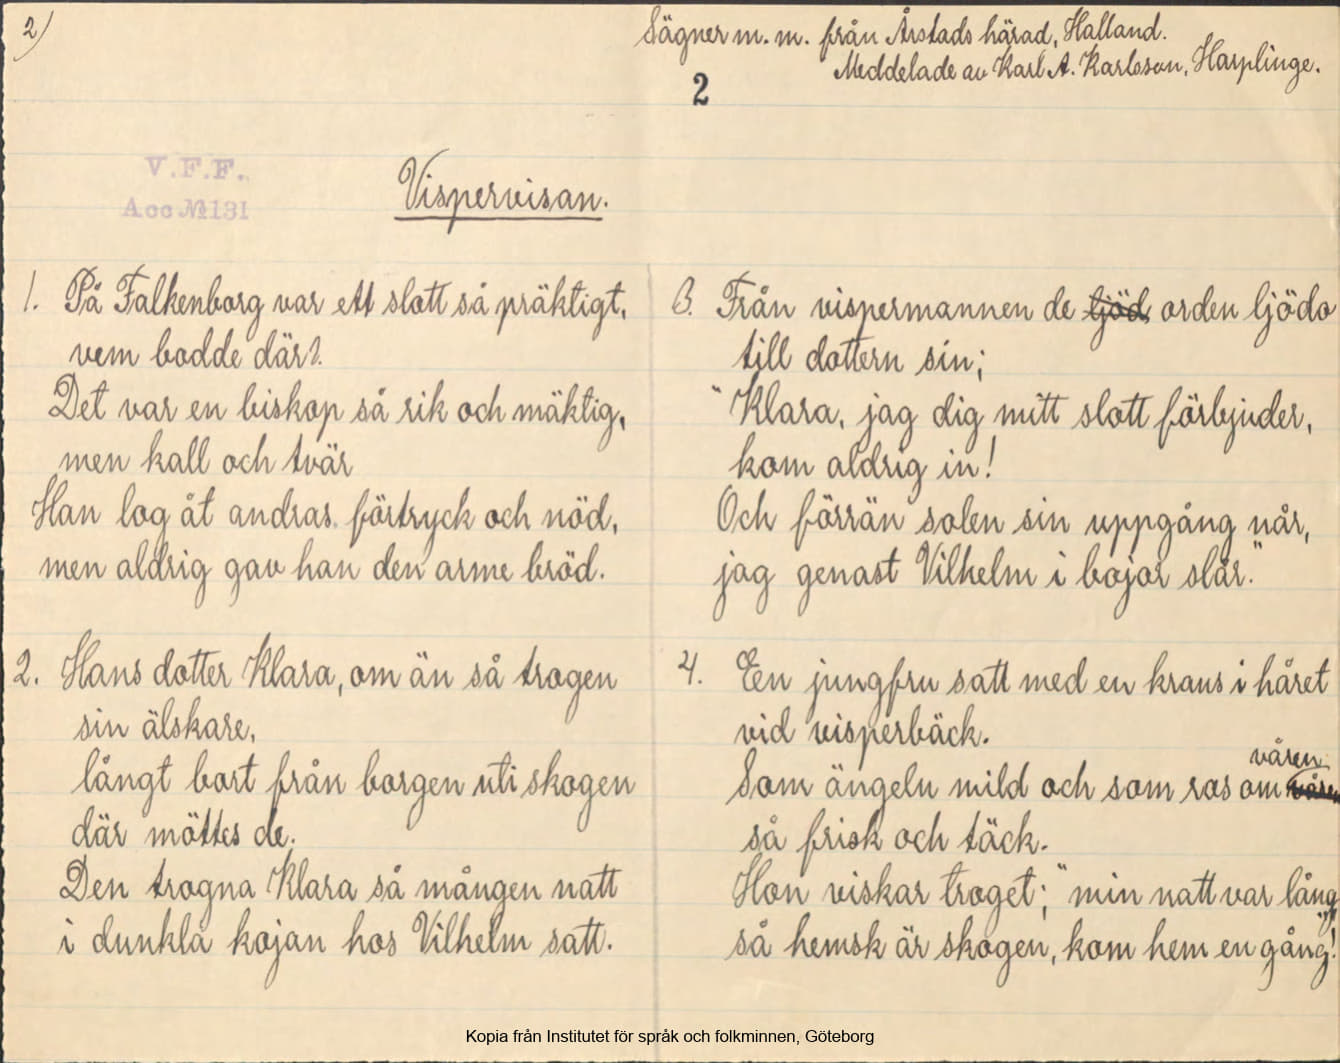 2)
Sägner m. m. från Årstads härad, Halland.
Meddelade av Karl A. Karlsson, Harplinge.
2
V.F.F.
Acc № 131
Vispervisan.
1. På Falkenborg var ett slott så präktigt,
vem bodde där?
Det var en biskop så rik och mäktig,
men kall och tvär
Han log åt andras förtryck och nöd,
men aldrig gav han den arme bröd.
2. Hans dotter Klara, om än så trogen
sin älskare,
långt bort från borgen uti skogen
där möttes de.
Den trogna Klara så mången natt
i dunkla kojan hos Vilhelm satt.
3. Från vispermannen de ljöd orden ljödo
till dottern sin;
"Klara, jag dig mitt slott förbjuder,
kom aldrig in!
Och förrän solen sin uppgång når,
jag genast Vilhelm i bojor slår."
4. En jungfru satt med en krans i håret
vid visperbäck.
Som ängeln mild och som ros om våren våren
så frisk och täck.
Hon viskar troget; "min natt var lång
så hemsk är skogen, kom hem en gång!"
Kopia från Institutet för språk och folkminnen, Göteborg